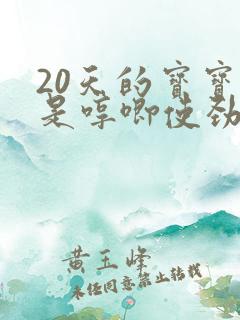 20天的宝宝
是哼唧使劲
黄玉峰
未经同意禁止转载